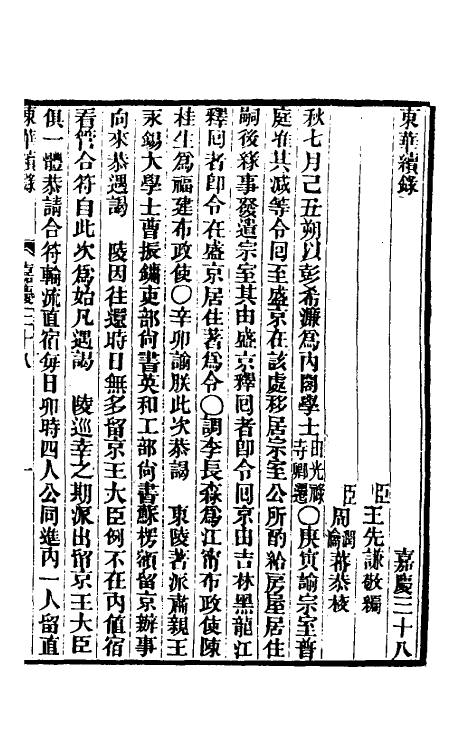 東華續錄
嘉慶三十八
臣王先謙敬編
臣周潤蕃 周渝蕃恭校
秋七月己丑朔以彭希濂爲內閣學士由光祿寺卿遷〇庚寅諭宗室普
庭准其減等令囘至盛京在該處移居宗室公所酌給房屋居住
嗣後緣事發遣宗室其由盛京釋囘者卽令囘京由吉林黑龍江
釋囘者卽令在盛京居住著爲令〇調李長森爲江甯布政使陳
桂生爲福建布政使〇辛卯諭朕此次恭謁 東陵著派肅親王
永錫大學士曹振鏞吏部尙書英和工部尙書蘇楞額留京辦事
向來恭遇謁 陵因往還時日無多留京王大臣例不在內値宿
看管合符自此次爲始凡遇謁 陵巡幸之期派出留京王大臣
俱一體恭請合符輪流直宿每日卯時四人公同進內一人留直
東華續錄 嘉慶三十八 一